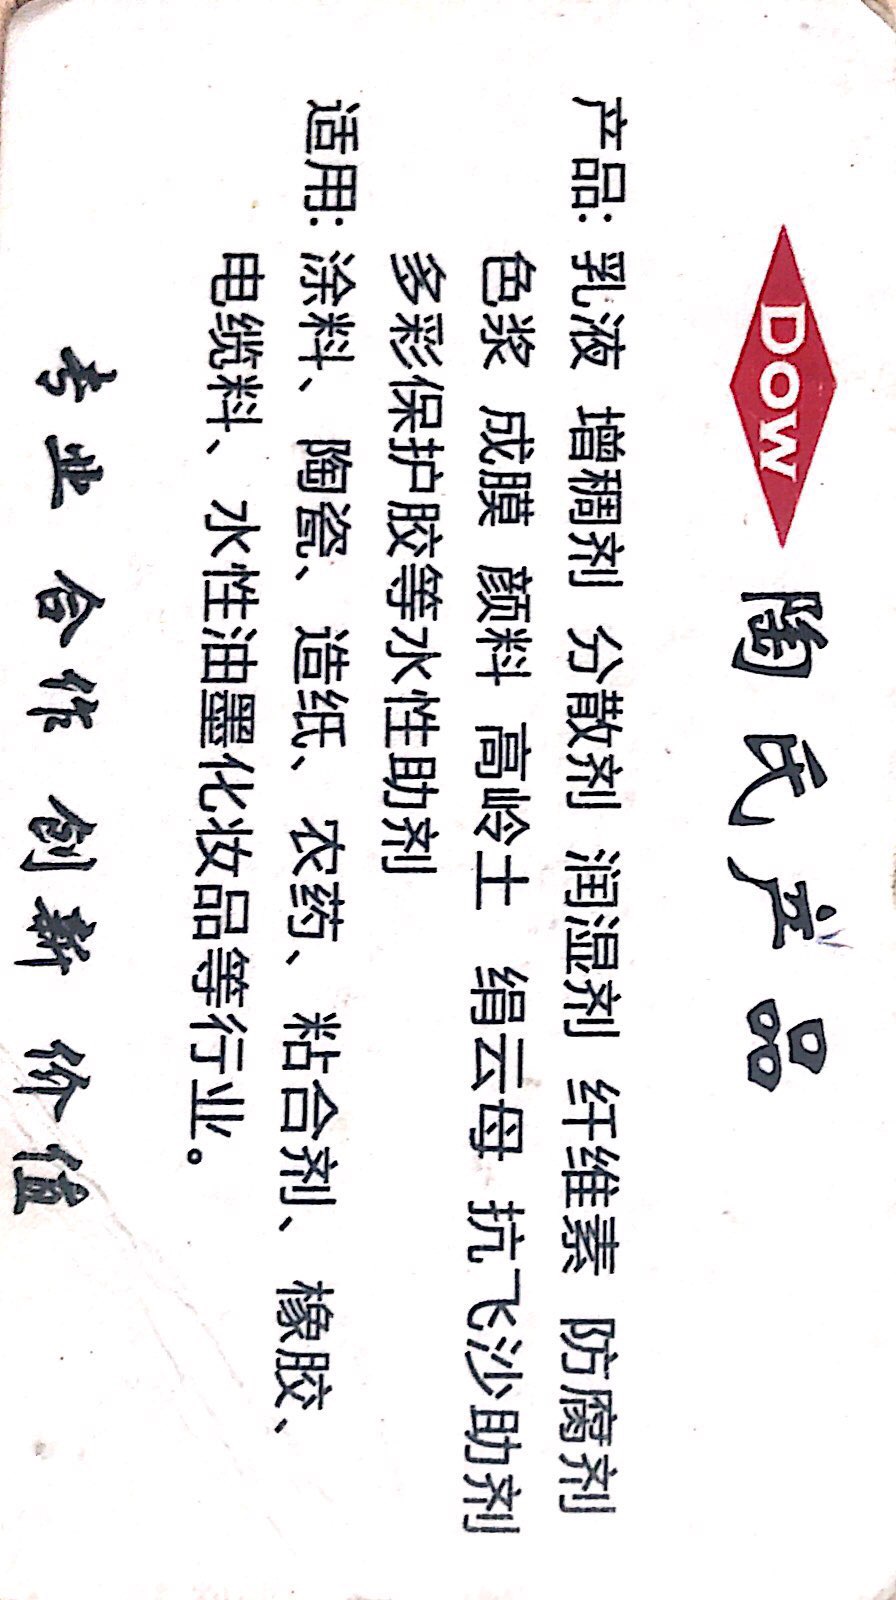 DOW 陶氏产品
产品: 乳液 增稠剂 分散剂 润湿剂 纤维素 防腐剂
色浆 成膜 颜料 高岭土 绢云母 抗飞沙助剂
多彩保护胶等水性助剂
适用: 涂料、陶瓷、造纸、农药、粘合剂、橡胶、
电缆料、水性油墨化妆品等行业。
专业 合作 创新 价值